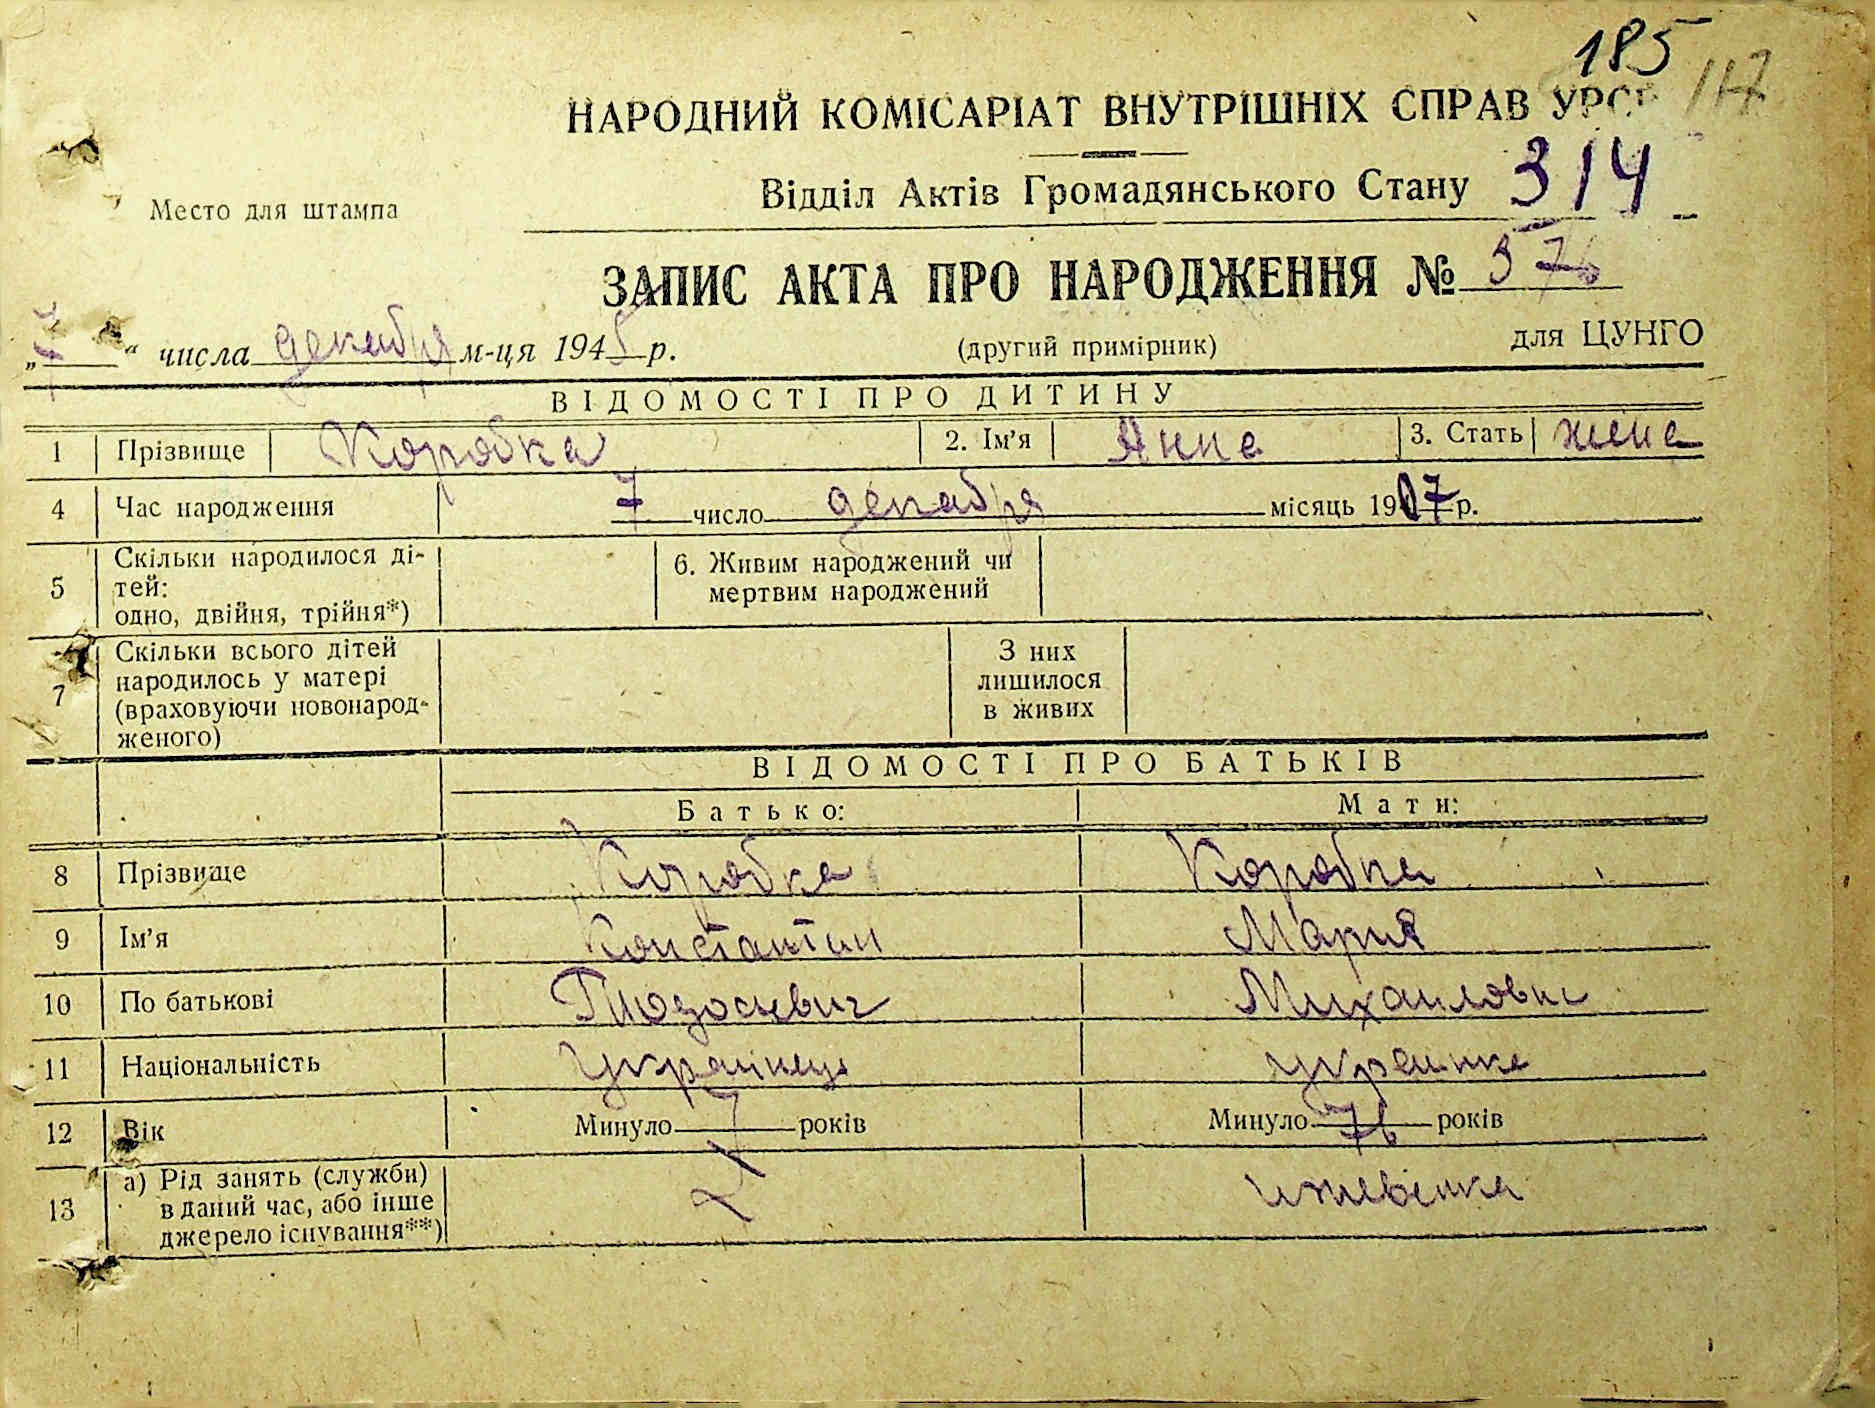 185
117
НАРОДНИЙ КОМІСАРІАТ ВНУТРІШНІХ СПРАВ УРСР
Место для штампа
Відділ Актів Громадянського Стану 314
ЗАПИС АКТА ПРО НАРОДЖЕННЯ № 576
„7“ числа декабря м-ця 1945 р. (другий примірник) для ЦУНГО
ВІДОМОСТІ ПРО ДИТИНУ
1 Прізвище Коробка 2. Ім’я Анна 3. Стать жена
4 Час народження 7 число декабря місяць 1907 р.
5 Скільки народилося ді-
тей:
одно, двійня, трійня*)
6. Живим народжений чи
мертвим народжений
7 Скільки всього дітей
народилось у матері
(враховуючи новонарод-
женого)
З них
лишилося
в живих
ВІДОМОСТІ ПРО БАТЬКІВ
Батько: Мати:
8 Прізвище Коробка Коробка
9 Ім’я Константин Мария
10 По батькові Михаиловна
11 Національність Українець украинка
12 Вік Минуло років Минуло 76 років
13 а) Рід занять (служби)
в даний час, або інше
джерело існування**)
иждевенка